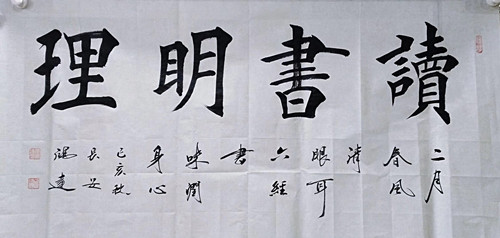 讀書明理
二月
春風
清
眼耳
六經
書
味潤
身心
己亥秋
長安
鴻達